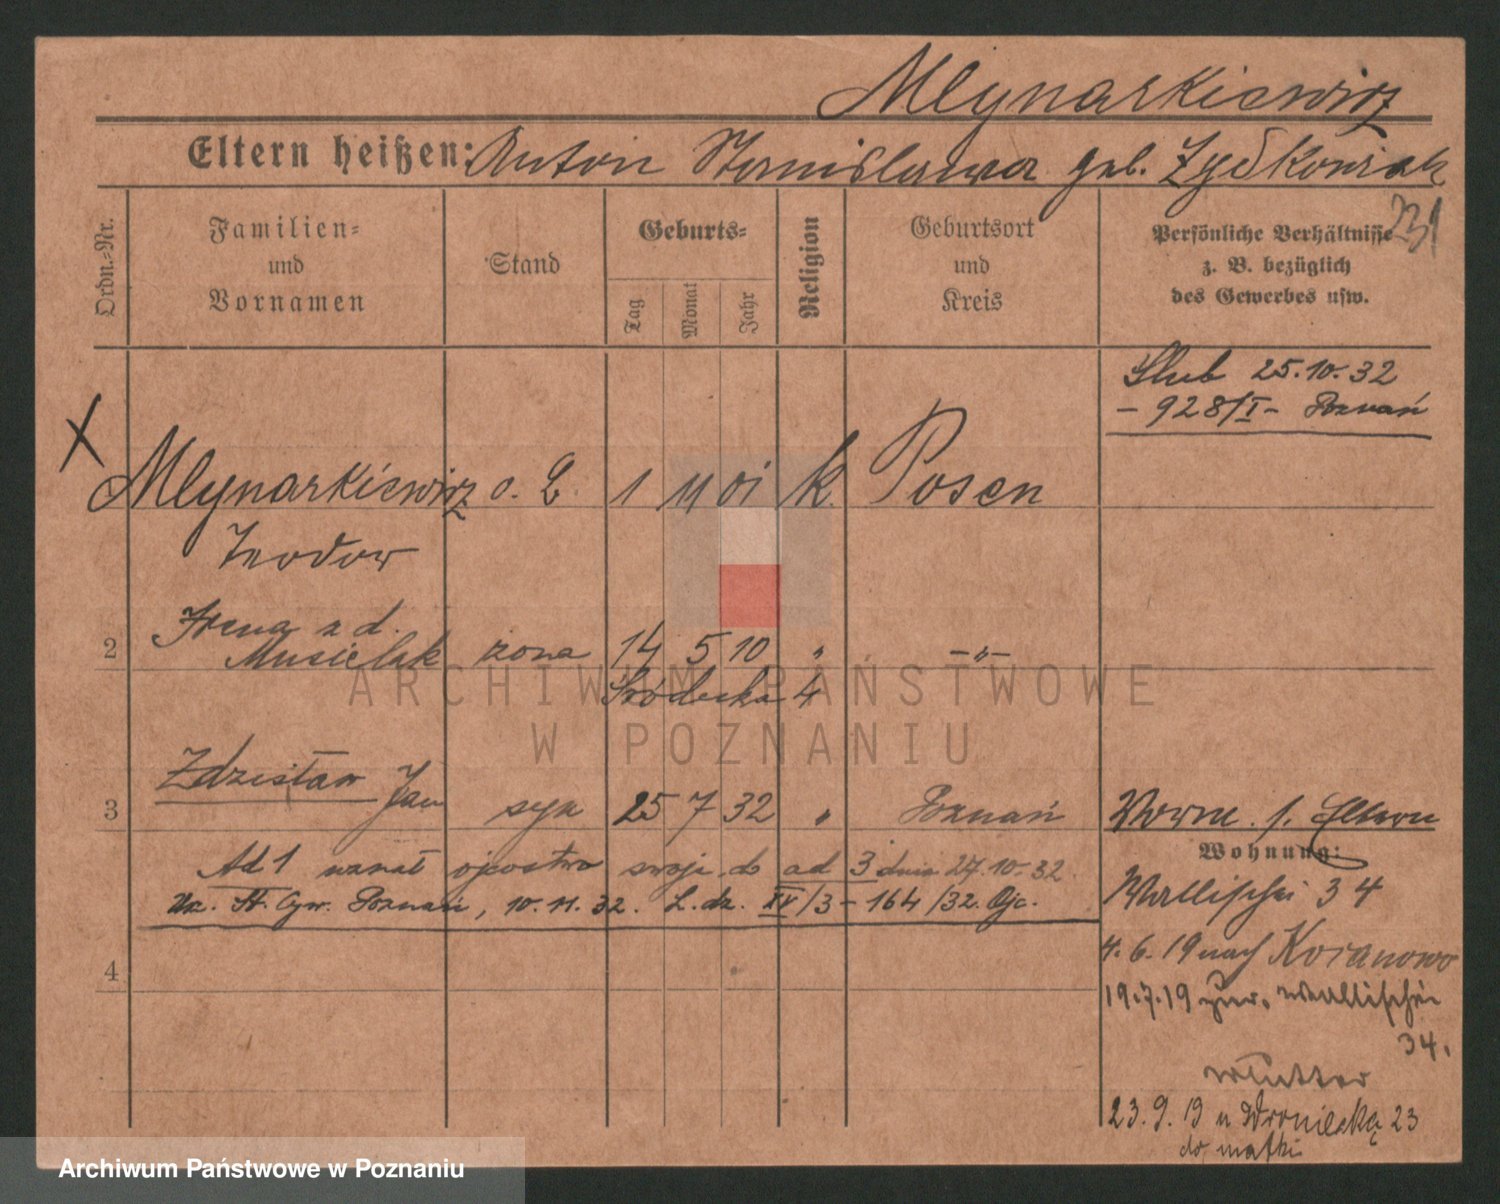 Mlynarkiewicz
Eltern heißen: Anton Stanislawa geb. Zydkowiak
231
Ordn.-Nr.
Familien-
und
Vornamen
Stand
Geburts-
Tag
Monat
Jahr
Religion
Geburtsort
und
Kreis
Persönliche Verhältnisse
z. B. bezüglich
des Gewerbes usw.
Slub 25.10.32
- 928/I - Poznań
X
Mlynarkiewicz o. L. 1 11 01 k. Posen
Teodor
Irena z d.
2 Musielak żona 14 5 10 " -"-
Śródecka 4
Zdzisław Jan
3 syn 25 7 32 " Poznań
Vorm. s. Eltern
Ad 1 uznał ojcostwo swoje do ad 3 dnia 27.10.32.
Uz. St. Cyw. Poznań, 10.11.32. L.dz. IV/3 - 164/32. Ojc.
Wohnung:
Wallischei 34
4
4.6.19 nach
19.7.19 zur. Wallischei
34.
Mutter
23.9.19 u Wroniecka 23
do matki
ARCHIWUM PAŃSTWOWE
W POZNANIU
Archiwum Państwowe w Poznaniu